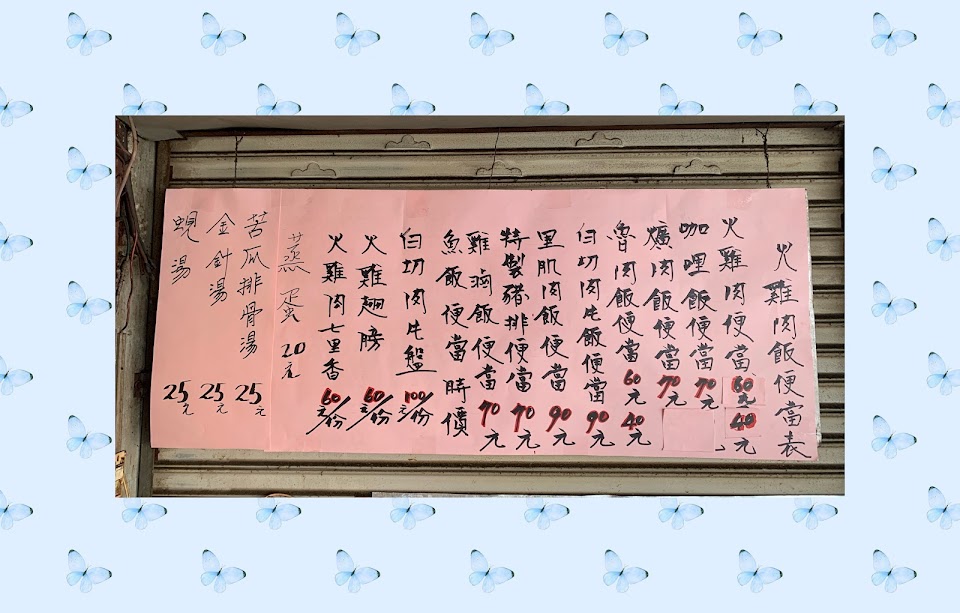 火雞肉飯便當表
火雞肉便當 60元 40元
咖哩飯便當 70元
爌肉飯便當 70元
魯肉飯便當 60元 40元
白切肉片飯便當 90元
里肌肉飯便當 90元
特製豬排便當 70元
雞滷飯便當 70元
魚飯便當 時價
白切肉片盤 100元/份
火雞翅膀 60元/份
火雞肉七里香 60元/份
蒸蛋 20元
苦瓜排骨湯 25元
金針湯 25元
蜆湯 25元